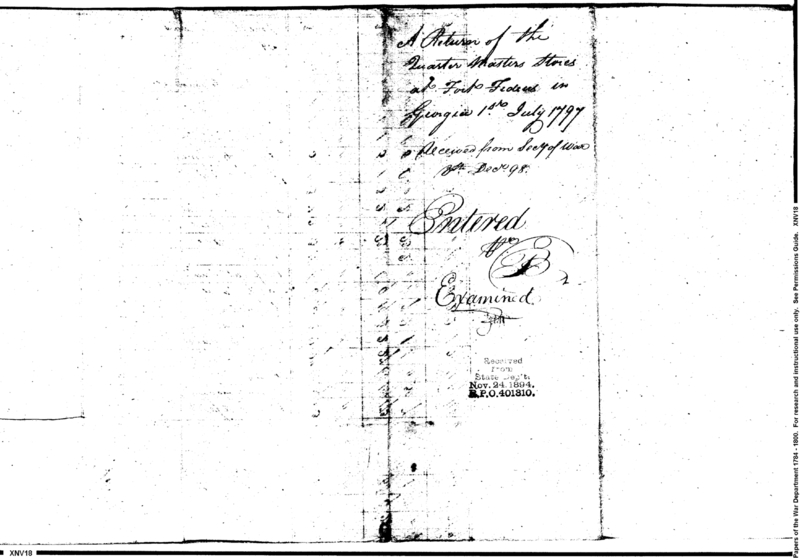 A Return of the
Quarter Masters Stores
at Fort Fideus in
Georgia 1st July 1797
Received from Secy of War
Decr 98.
Entered
B
Examined
Received
from
State Dep't.
Nov. 24. 1894.
R.P.O. 401310.
XNV18
Papers of the War Department 1784 - 1800. For research and instructional use only. See Permissions Guide. XNV18